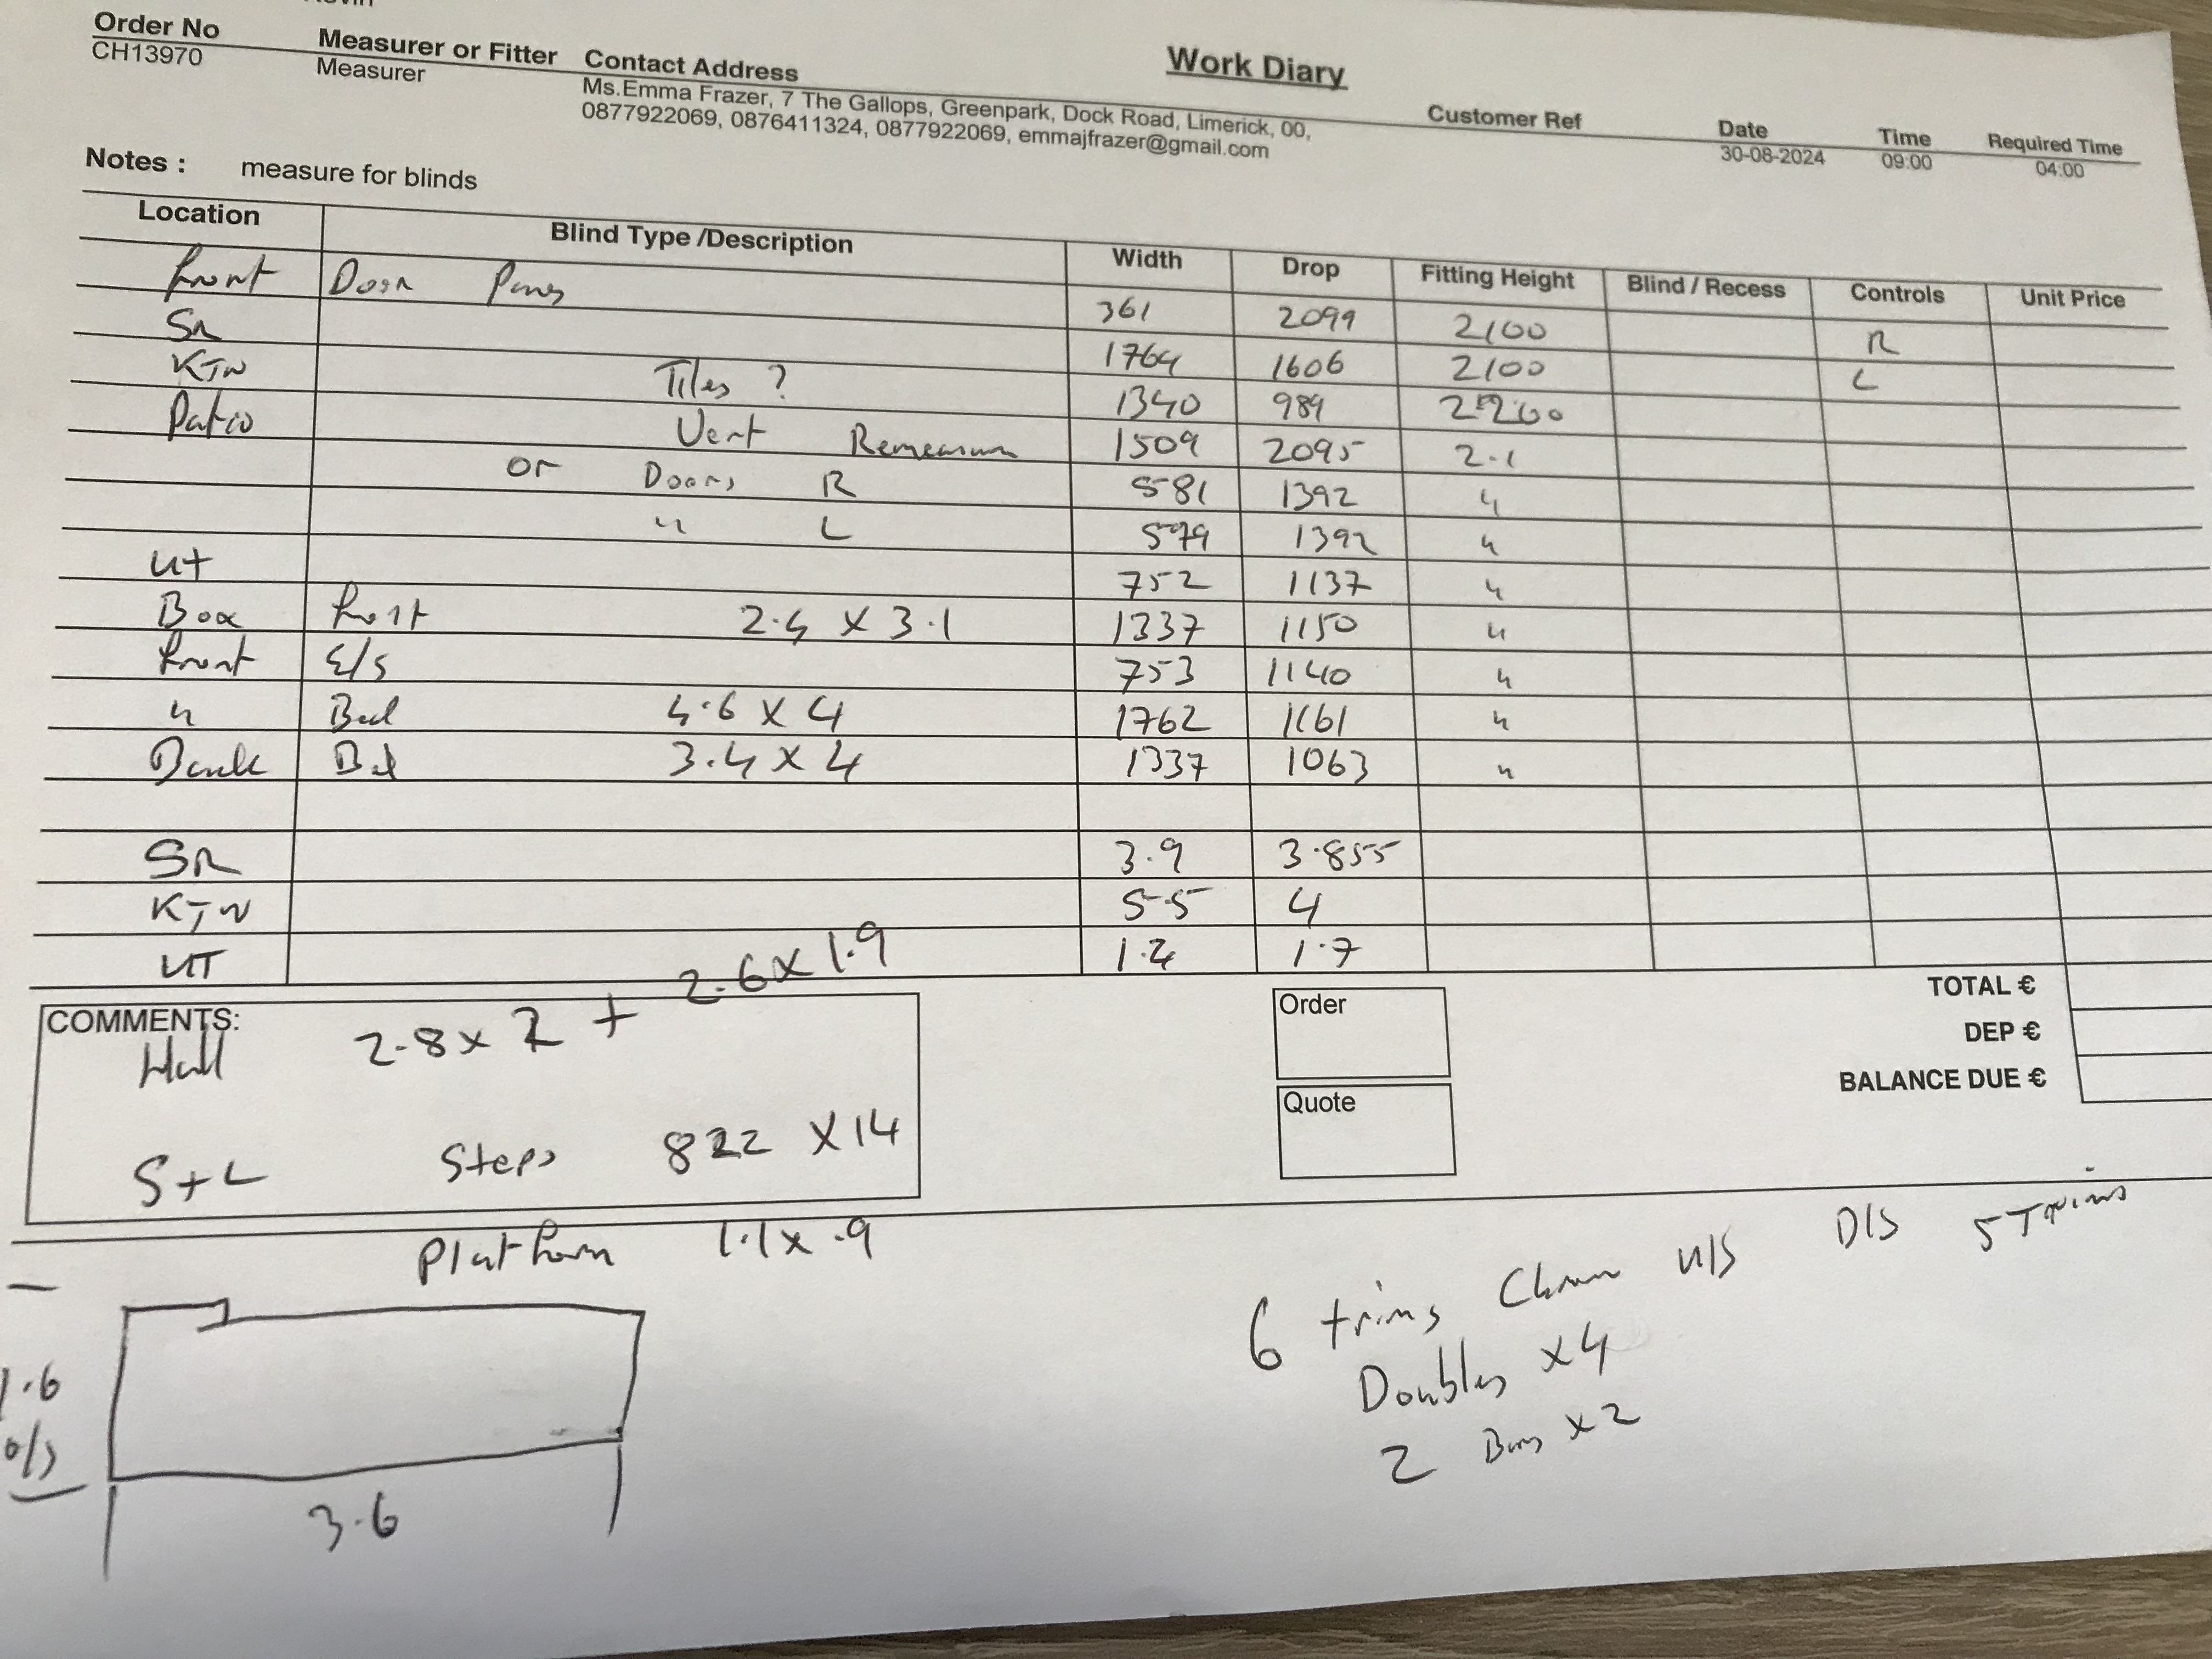 Order No Measurer or Fitter Contact Address Work Diary Customer Ref Date Time Required Time
CH13970 Measurer Ms.Emma Frazer, 7 The Gallops, Greenpark, Dock Road, Limerick, 00, 30-08-2024 09:00 04:00
0877922069, 0876411324, 0877922069, emmajfrazer@gmail.com
Notes : measure for blinds
Location Blind Type /Description Width Drop Fitting Height Blind / Recess Controls Unit Price
Front Door 361 2099 2100 R
SR 1764 1606 2100 L
KTN Tiles ? 1340 989 2200
Patio Vert Remeasure 1509 2095 2.1
or Doors R 581 1392 "
" L 579 1392 "
UT 752 1137 "
Box Front 2.4 X 3.1 1337 1150 "
Front E/S 753 1140 "
" Bed 4.6 X 4 1762 1161 "
Back Bed 3.4 X 4 1337 1063 "
SR 3.9 3.855
KTN 5.5 4
UT 1.2 1.7
COMMENTS:
Hall 2.8 x 2 + 2.6 x 1.9
S+L Steps 822 X 14
Platform 1.1 x .9
Order
Quote
TOTAL €
DEP €
BALANCE DUE €
1.6
o/s
3.6
6 trims U/S D/S 5 Trims
Doubles x4
2 Bars x2